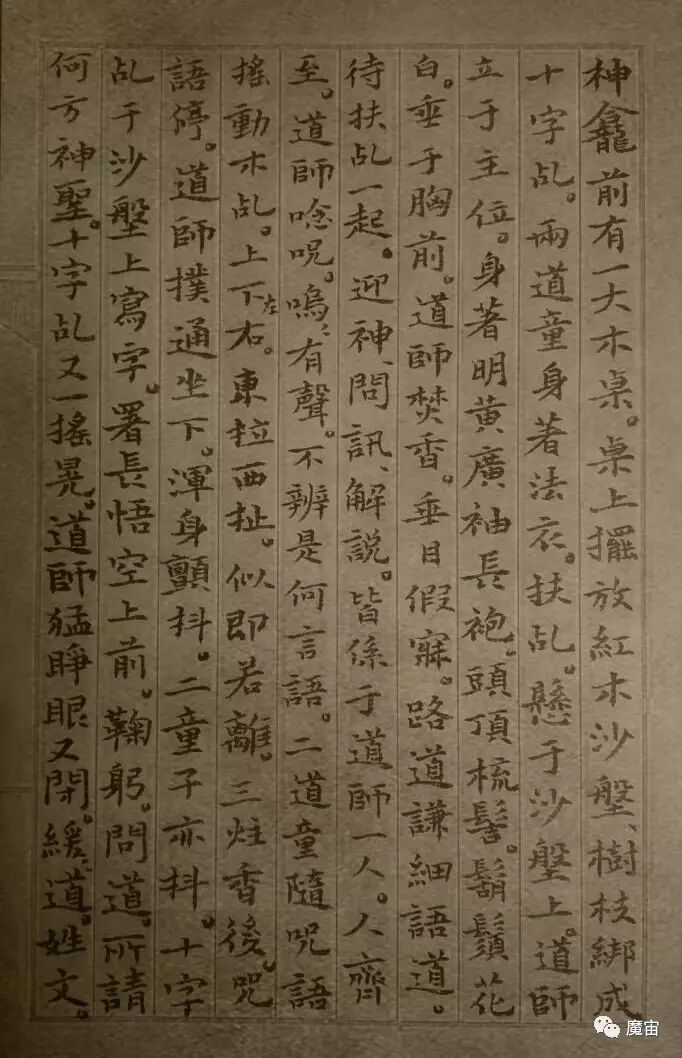 神龕前有一大木桌。桌上擺放紅木沙盤、樹枝綁成
十字乩。兩道童身著法衣。扶乩。懸于沙盤上。道師
立于主位。身著明黃廣袖長袍。頭頂梳髻。鬍鬚花
白。垂于胸前。道師焚香。垂目假寐。路道謙細語道。
待扶乩一起。迎神、問訊、解説。皆係于道師一人。人齊
至。道師唸呪。嗚、有聲。不辨是何言語。二道童隨呪語
搖動木乩。上下左右。東拉西扯。似即若離。三炷香後。呪
語停。道師撲通坐下。渾身顫抖。二童子亦抖。十字
乩于沙盤上寫字。署長悟空上前。鞠躬。問道。所請
何方神聖。十字乩又一搖晃。道師猛睜眼又閉。緩、道。姓文。
魔宙